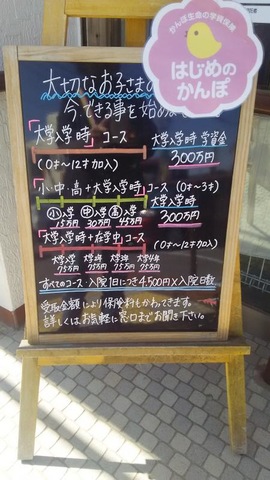 かんぽ生命の学資保険
はじめの
かんぽ
大切なお子さま
今、できる事を始め
「大学入学時」コース
大学入学時 学資金
(0才〜12才加入)
300万円
「小・中・高+大学入学時」コース (0才〜3才)
大学入学時
小入学 中入学 高入学
300万円
15万円 30万円 45万円
「大学入学時+在学中」コース
(0才〜12才加入)
大学入学 大学2年 大学3年 大学4年
75万円 75万円 75万円 75万円
すべてのコース:入院1日につき4,500円×入院日数
受取金額により保険料もかわってきます。
詳しくは、お気軽に窓口までお聞き下さい。